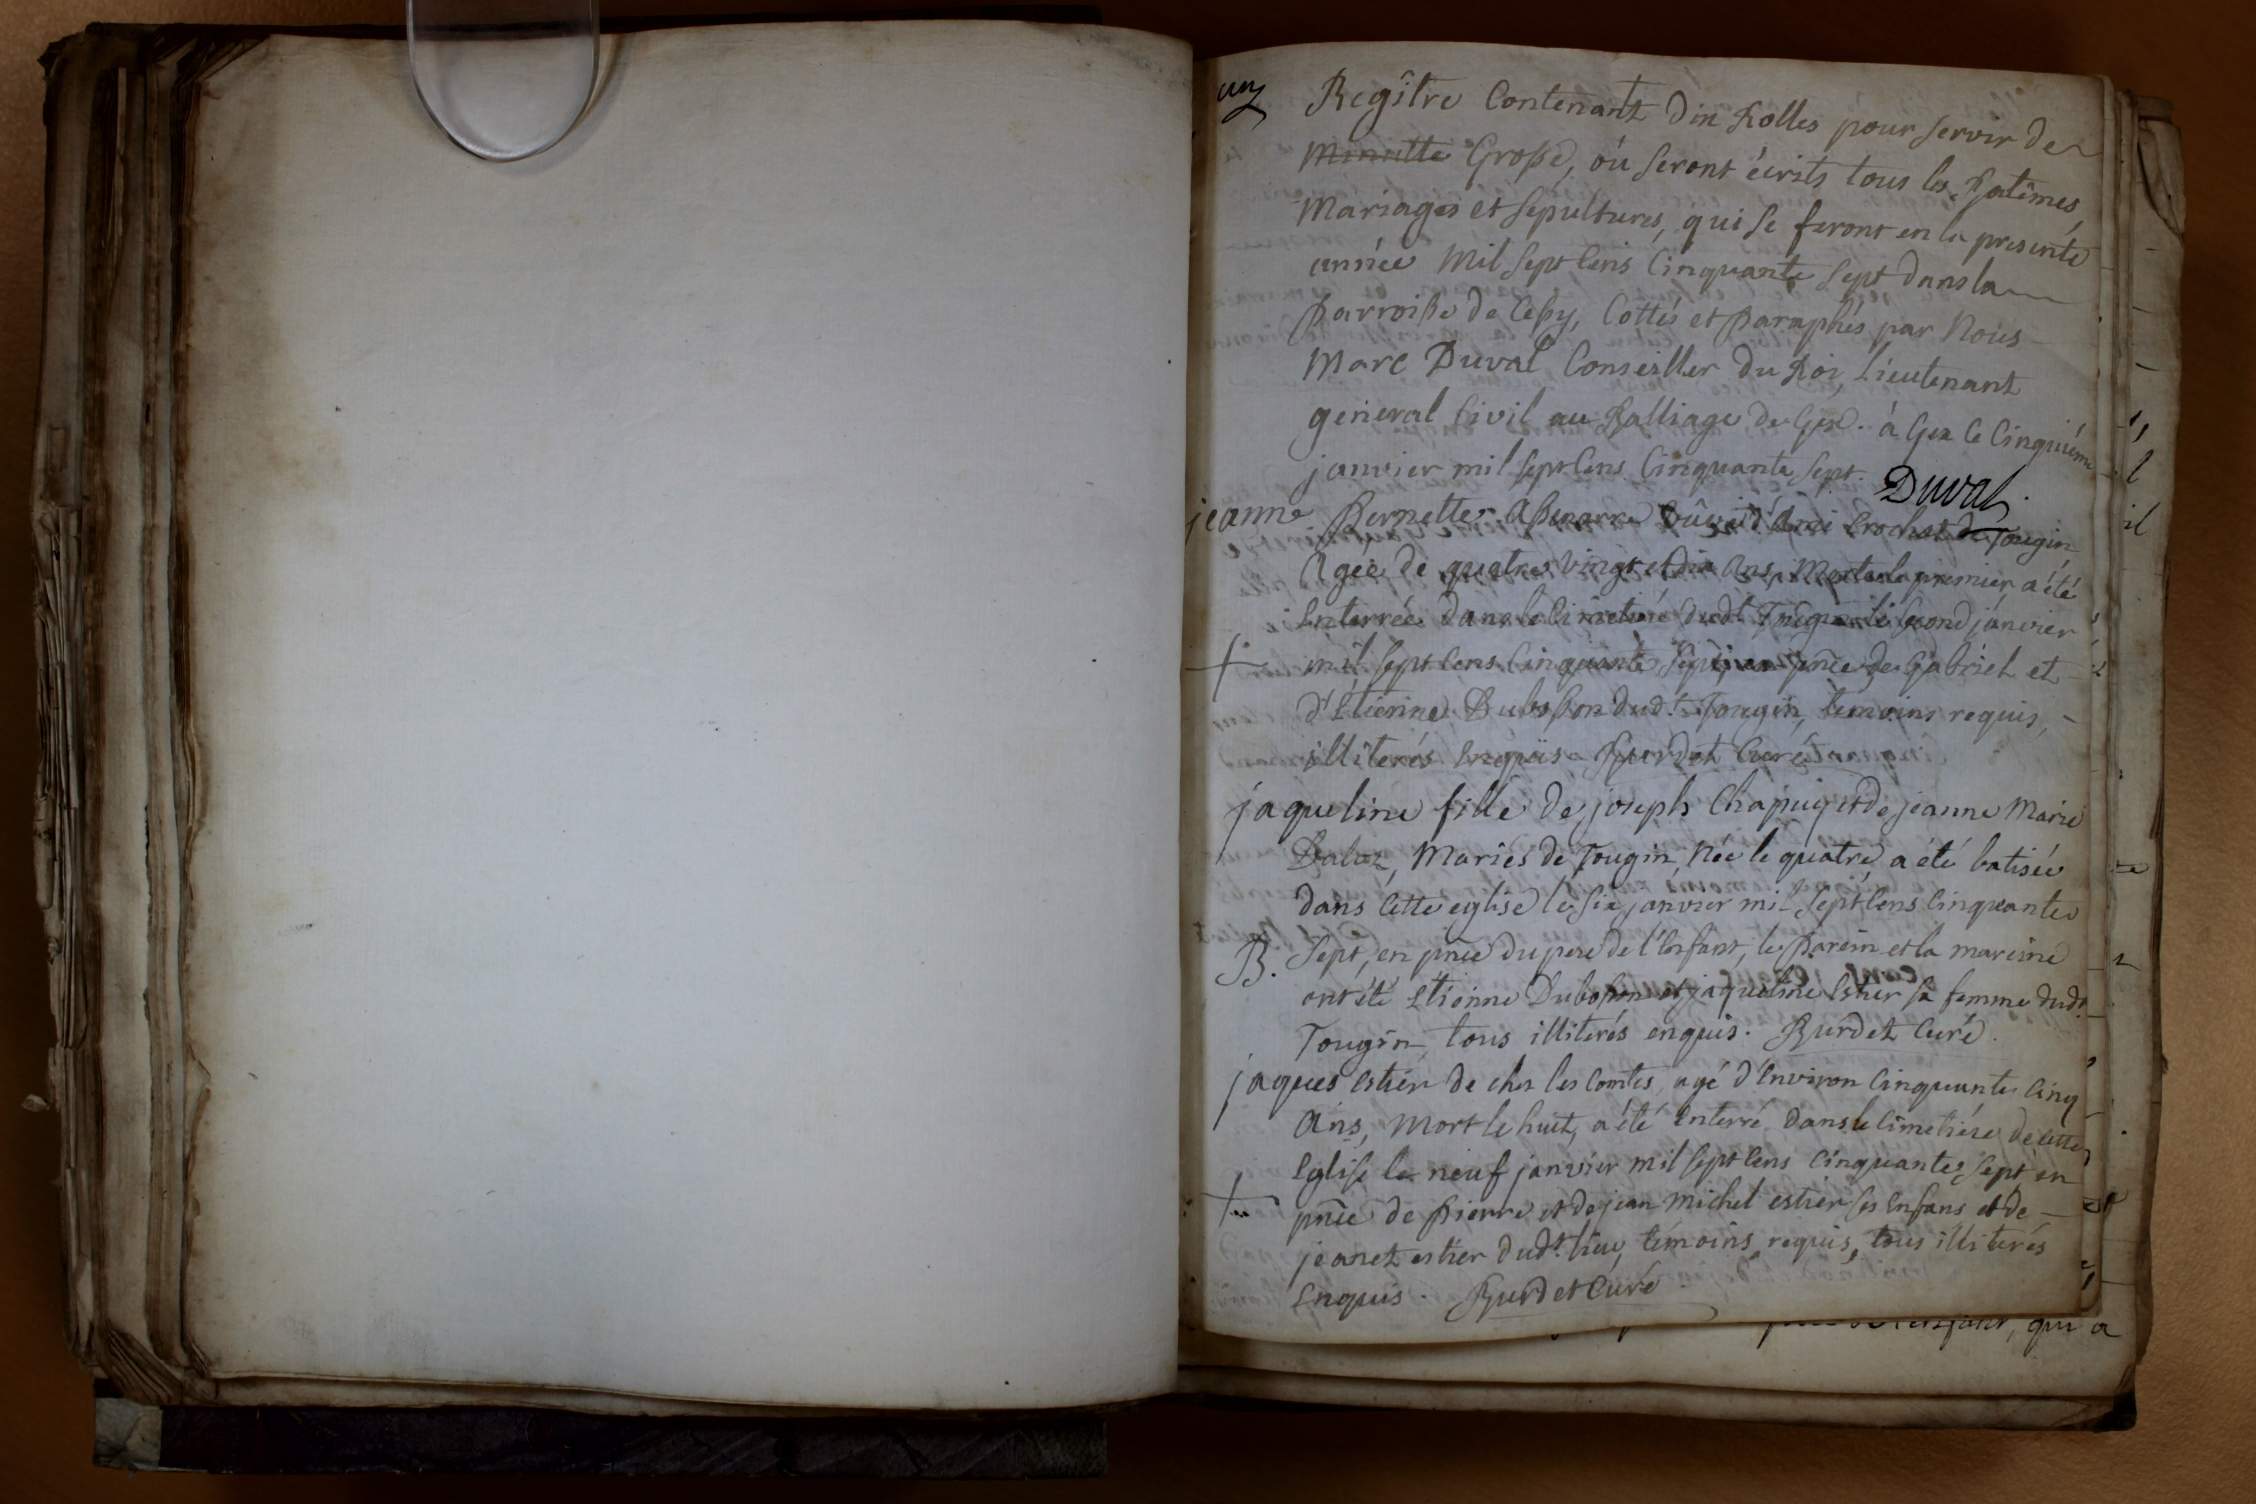 un
Regître Contenant dix Rolles pour servir de
Minutte Grosse, où seront écrits tous les Batêmes,
Mariages et sepultures, qui se feront en la presente
année Mil sept Cens Cinquante sept dans la
Parroisse de Cessy, Cottés et Paraphés par Nous
Marc Duval Conseiller du Roi, Lieutenant
general Civil au Balliage de Gex. à Gex le Cinquiéme
janvier mil sept Cens Cinquante sept.
Duval
jeanne Pernette vûve d'Ami Crochat de Tougin
Agée de quatre vingt et dix Ans, Morte le premier a été
Enterrée dans le Cimetiére dudt Tougin le second janvier
mil sept Cens Cinquante sept, en pnce de Gabriel et
+
d'Etienne Dubosson dudt Tougin, temoins requis,
illiterés Enquis Burdet Curé
jaqueline fille de joseph Chapuy et de jeanne Marie
Balaz, Mariés de Tougin, Née le quatre a été batisée
dans Cette eglise le six janvier mi- sept Cens Cinquante
B. Sept, en pnce du pere de l'Enfant, le Parein et la mareine
ont été Etienne Dubosson et jaqueline Estier sa femme dudt
Tougin, tous illiterés enquis. Burdet Curé.
jaques estier de chez les Comtes, agé d'Environ Cinquante Cinq
Ans, Mort le huit, a été Enterré dans le Cimetiére de Cette
Eglise le neuf janvier mil sept Cens Cinquante sept en
+ pnce de Pierre et de jean Michel estier ses Enfans et de
jeanet estier dudt lieu, témoins requis, tous illiterés
Enquis. Burdet Curé
l'enfant, qui a